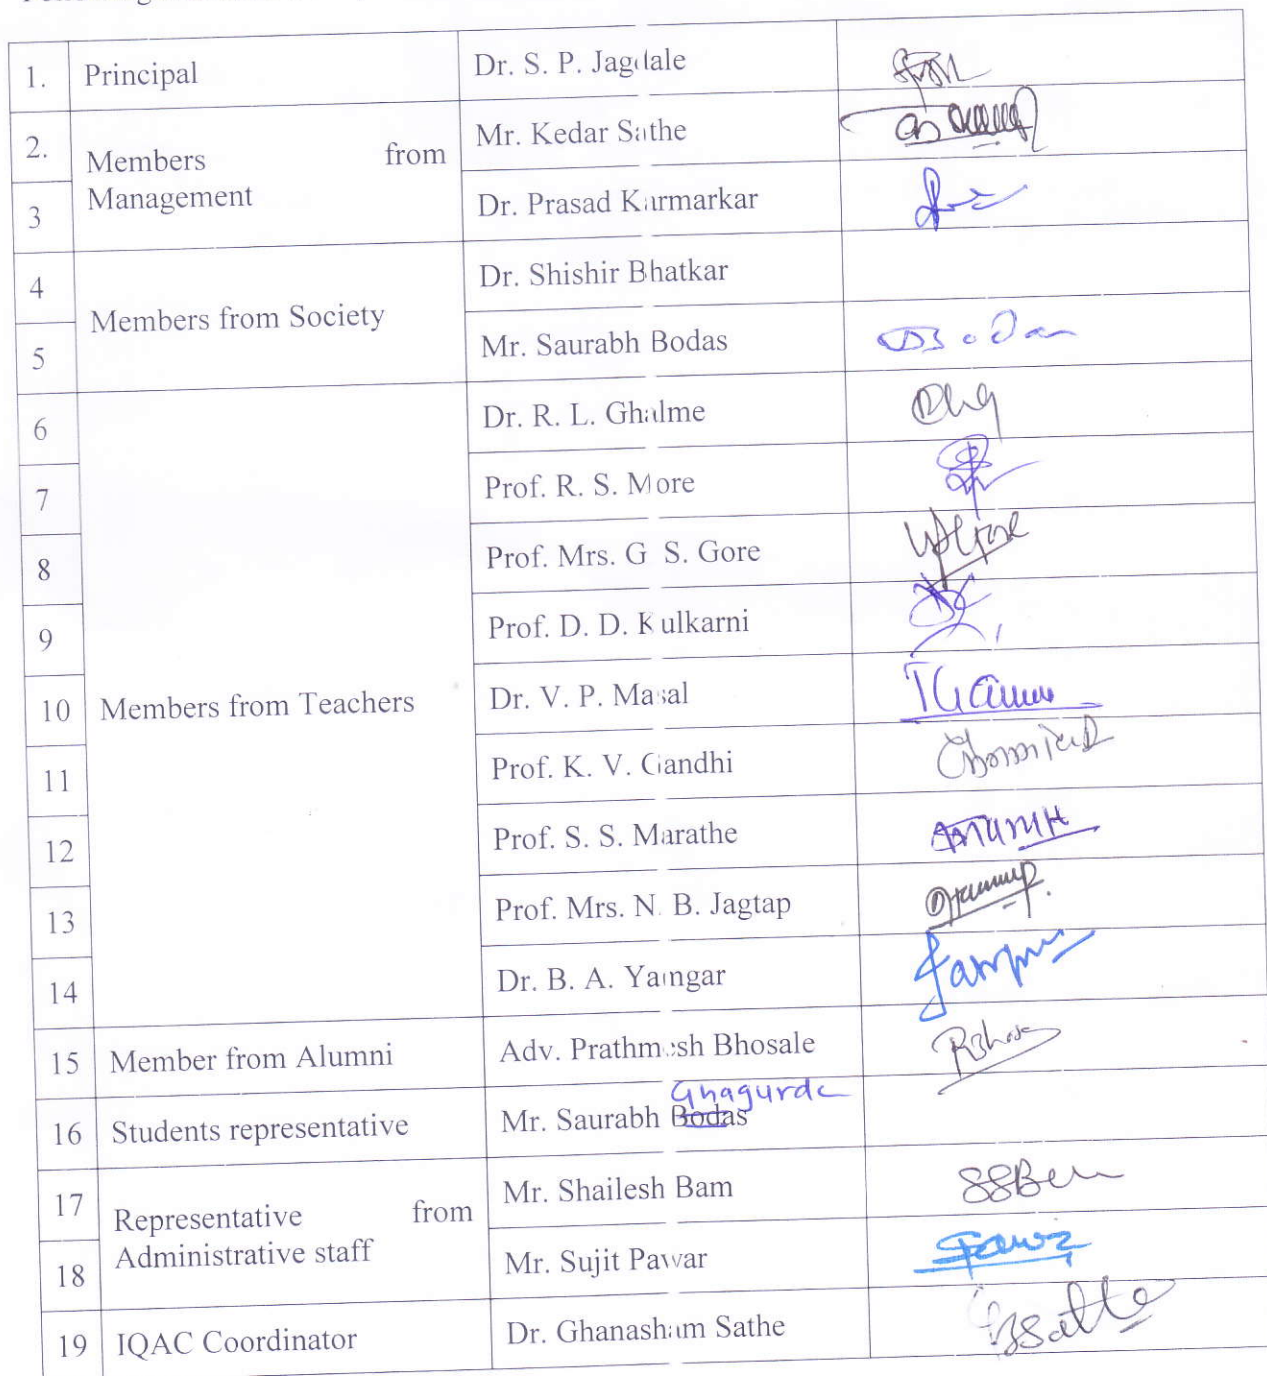 1. Principal Dr. S. P. Jagdale
2. Members from Management Mr. Kedar Sathe
3 Dr. Prasad Karmarkar
4 Members from Society Dr. Shishir Bhatkar
5 Mr. Saurabh Bodas
6 Members from Teachers Dr. R. L. Ghalme
7 Prof. R. S. More
8 Prof. Mrs. G S. Gore
9 Prof. D. D. Kulkarni
10 Dr. V. P. Masal
11 Prof. K. V. Gandhi
12 Prof. S. S. Marathe
13 Prof. Mrs. N. B. Jagtap
14 Dr. B. A. Yamgar
15 Member from Alumni Adv. Prathmesh Bhosale
Ghagurde
16 Students representative Mr. Saurabh Bodas
17 Representative from Administrative staff Mr. Shailesh Bam
18 Mr. Sujit Pawar
19 IQAC Coordinator Dr. Ghanasham Sathe